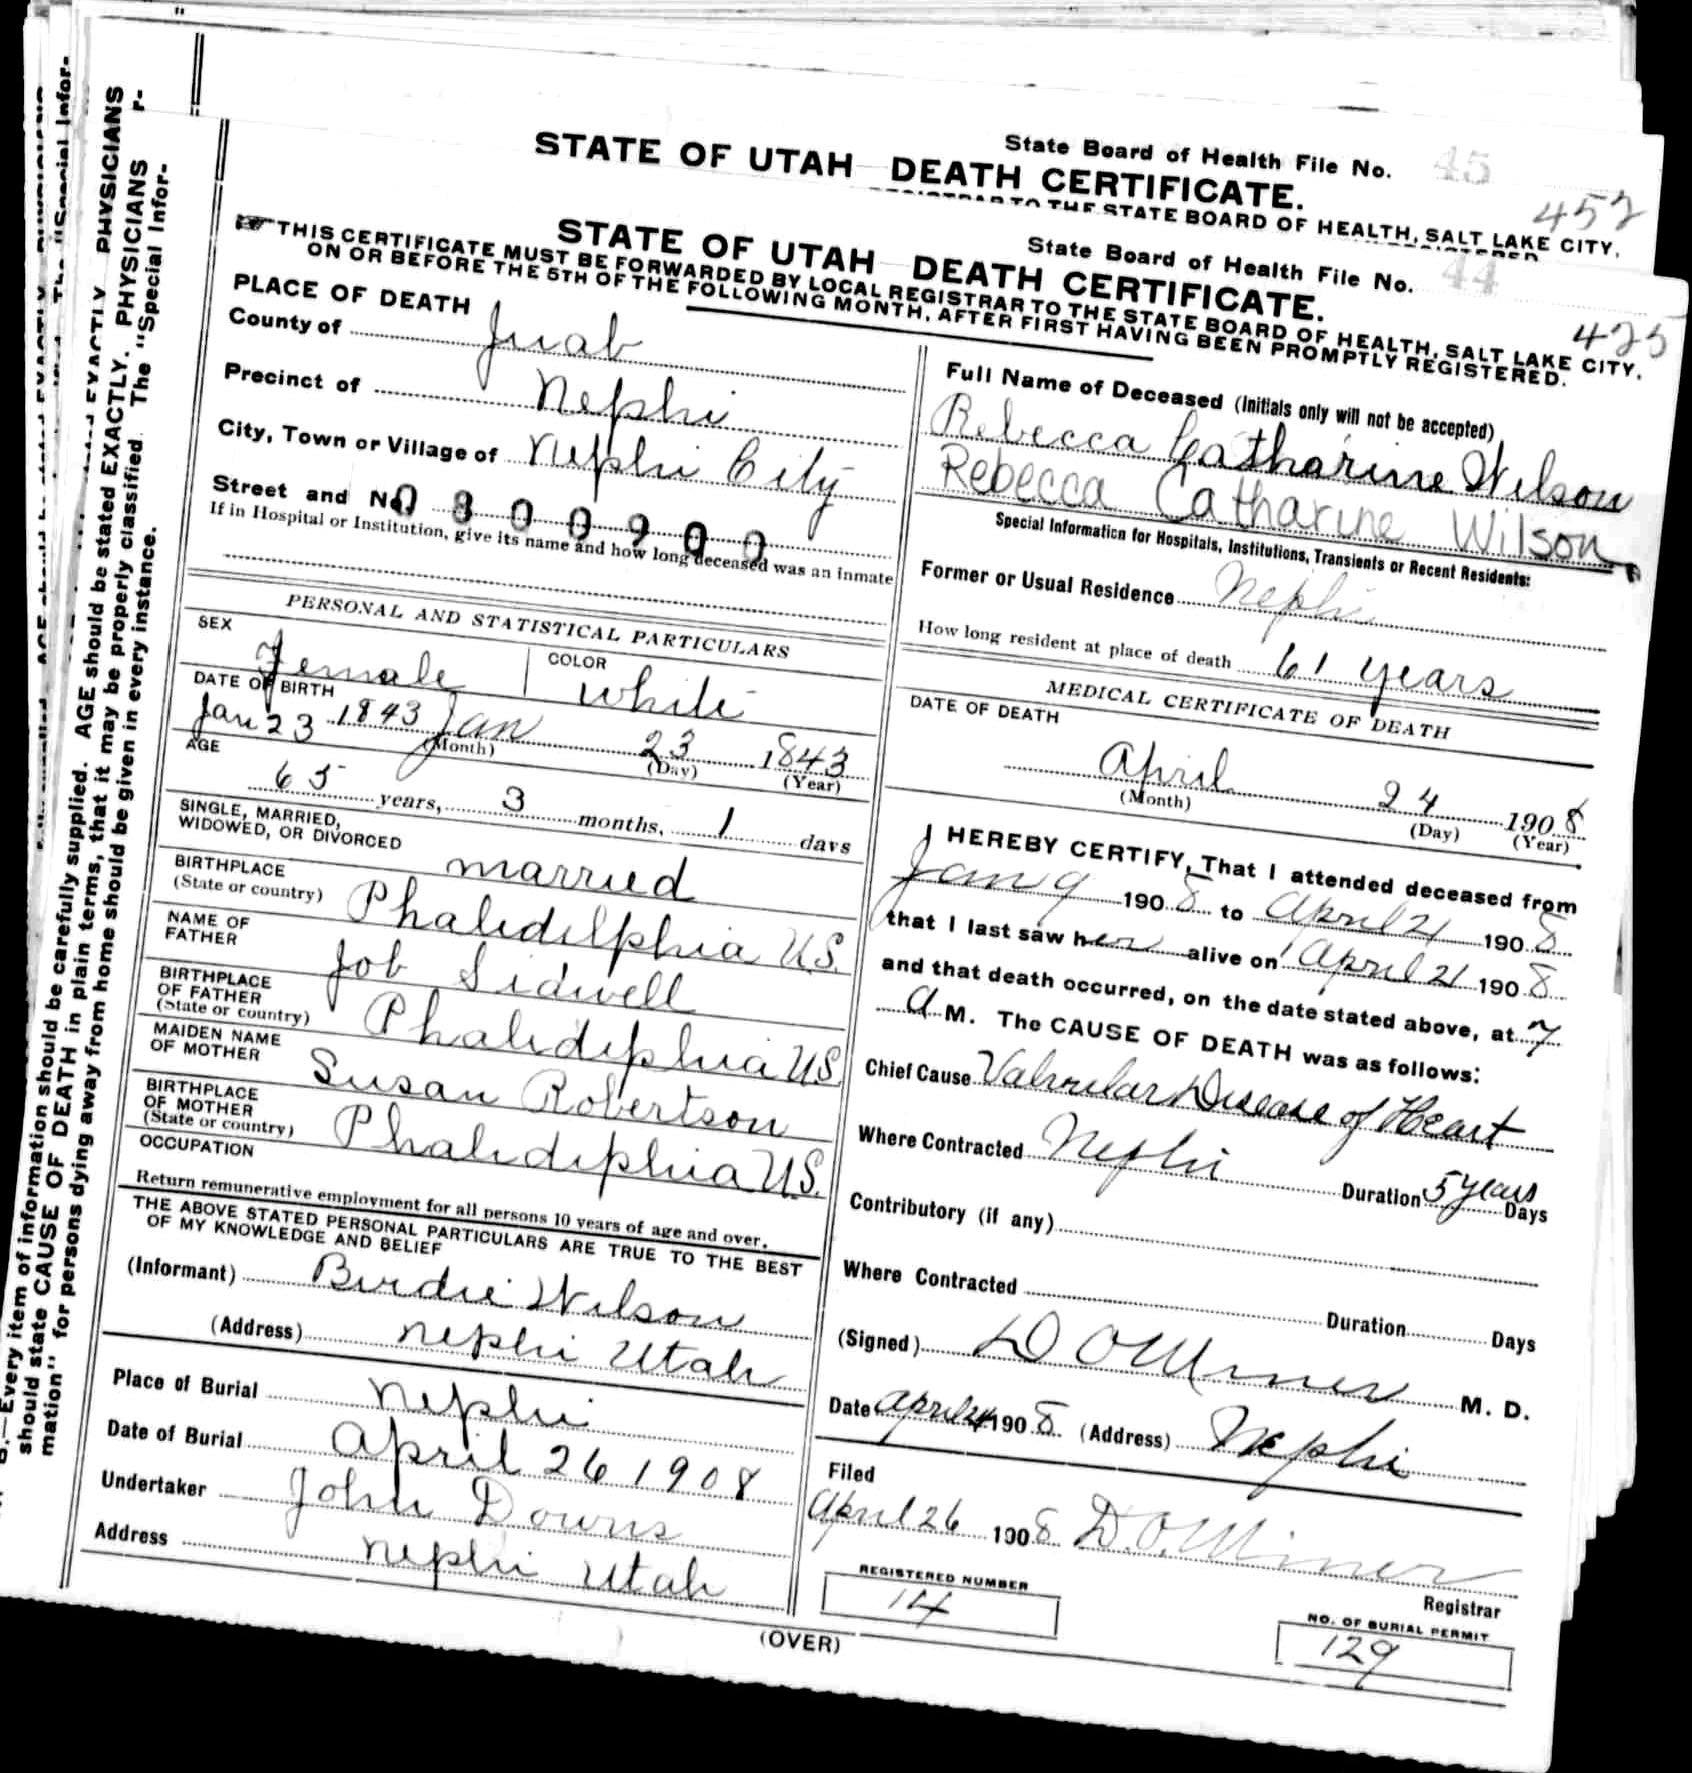 State Board of Health File No. 45
STATE OF UTAH DEATH CERTIFICATE.
452
TO THE STATE BOARD OF HEALTH, SALT LAKE CITY,
State Board of Health File No. 44
STATE OF UTAH DEATH CERTIFICATE.
425
THIS CERTIFICATE MUST BE FORWARDED BY LOCAL REGISTRAR TO THE STATE BOARD OF HEALTH, SALT LAKE CITY,
ON OR BEFORE THE 5TH OF THE FOLLOWING MONTH, AFTER FIRST HAVING BEEN PROMPTLY REGISTERED.
PLACE OF DEATH
County of Juab
Precinct of Nephi
City, Town or Village of Nephi City
Street and No. 0 8 0 0 9 0 0
If in Hospital or Institution, give its name and how long deceased was an inmate
PERSONAL AND STATISTICAL PARTICULARS
SEX Female COLOR White
DATE OF BIRTH
Jan 23 1843 Jan 23 1843
(Month) (Day) (Year)
AGE
65 years, 3 months, 1 days
SINGLE, MARRIED,
WIDOWED, OR DIVORCED married
BIRTHPLACE
(State or country) Phalidelphia U.S.
NAME OF
FATHER Job Sidwell
BIRTHPLACE
OF FATHER
(State or country) Phalidiphia U.S.
MAIDEN NAME
OF MOTHER Susan Robertson
BIRTHPLACE
OF MOTHER
(State or country) Phalidiphia U.S.
OCCUPATION
Return remunerative employment for all persons 10 years of age and over.
THE ABOVE STATED PERSONAL PARTICULARS ARE TRUE TO THE BEST
OF MY KNOWLEDGE AND BELIEF
(Informant) Birdie Wilson
(Address) Nephi Utah
Place of Burial Nephi
Date of Burial April 26 1908
Undertaker John Downs
Address Nephi Utah
Full Name of Deceased (Initials only will not be accepted)
Rebecca Catharine Wilson
Rebecca Catharine Wilson
Special Information for Hospitals, Institutions, Transients or Recent Residents:
Former or Usual Residence Nephi
How long resident at place of death 61 years
MEDICAL CERTIFICATE OF DEATH
DATE OF DEATH
April 24 1908
(Month) (Day) (Year)
I HEREBY CERTIFY, That I attended deceased from
Jan 9 1908 to April 21 1908
that I last saw her alive on April 21 1908
and that death occurred, on the date stated above, at 7
a M. The CAUSE OF DEATH was as follows:
Chief Cause Valvular Disease of Heart
Where Contracted Nephi Duration 5 years Days
Contributory (if any)
Where Contracted Duration Days
(Signed) D O Miner M. D.
Date April 24 1908 (Address) Nephi
Filed
April 26 1908 D.O. Miner
Registrar
REGISTERED NUMBER
14
NO. OF BURIAL PERMIT
129
(OVER)
B.—Every item of information should be carefully supplied. AGE should be stated EXACTLY. PHYSICIANS
should state CAUSE OF DEATH in plain terms, that it may be properly classified. The "Special Infor-
mation" for persons dying away from home should be given in every instance.